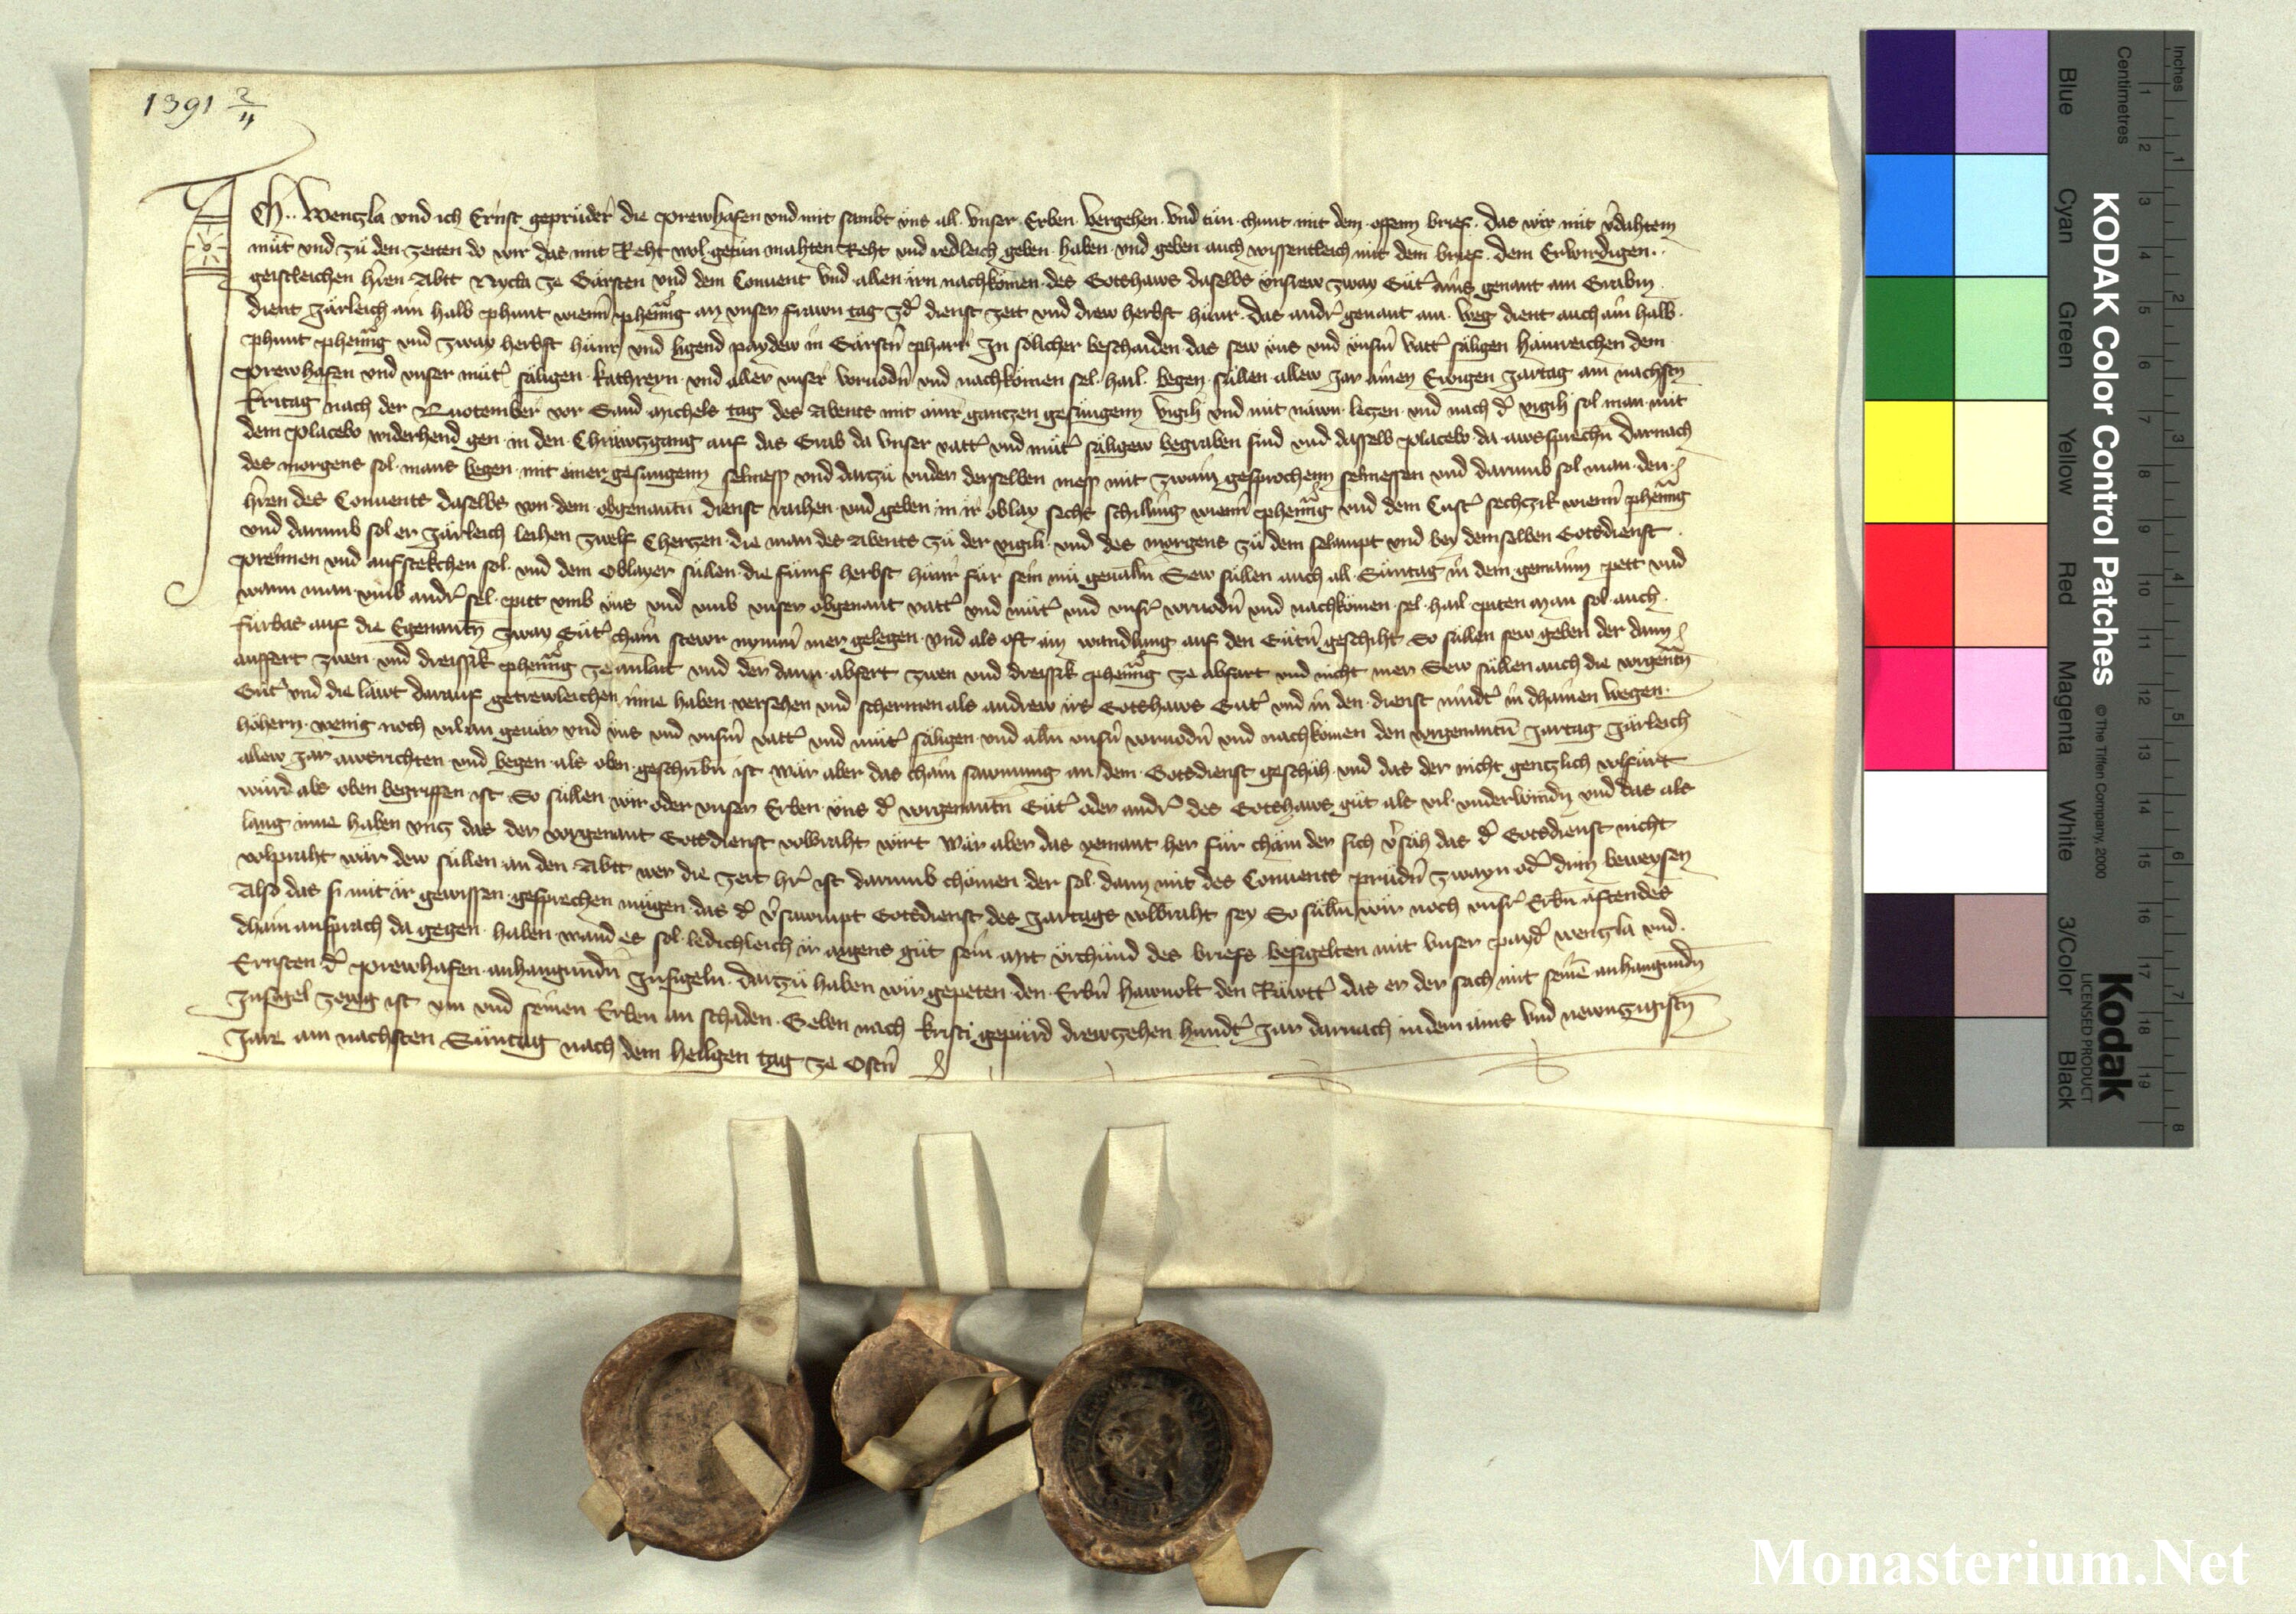 1391 2/4
Ich Wenczla vnd ich Ernst geprüder die Prewhafen vnd mit sambt vns all vnser Erben vergehen vnd tun chunt mit dem offenn brief das wir mit vdahtem
müt vnd zü den zeiten do wir das mit Reht wol getün mahten Reht vnd redleich geben haben vnd geben auch wissentleich mit dem brief dem Erwirdigen
geistleichen hren Abtt Nycla ze Gärsten vnd dem Conuent vnd allen irn nachkömen des Gotshaws daselbs vnsrew zway Güt ains genant am Grabm
dient Järleich ain halb phunt wienn phennig an vnser frawn tag zd dienst zeit vnd drew herbst hünr das andr genant am weg dient auch ain halb
phunt phennig vnd zway herbst hünr vnd ligend paydew in Gärstn pharr In sölicher beschaiden das sew vns vnd vnsm vatt säligen hainreichen dem
Prewhafen vnd vnser müt säligen kathreyn vnd aller vnser voruodn vnd nachkömen sel hail begen süllen allew Jar ainen Ewigen Jartag am nachsten
Fritag nach der Quotember vor Sand Michels tag des Abents mit ainr ganczen gesungenn vigili vnd mit näwn leczen vnd nach d vigili sol man mit
dem Placebo widerhend gen in den Chräwczgang auf das Grab da vnser vatt vnd müt säligew begraben sind vnd dasselb Placebo da awssprechn darnach
des morgens sol mans begen mit einer gesungenn selmess vnd darzü vnder derselben mess mit zwain gesprochenn selmessen vnd darumb sol man den
hren des Conuents daselbs von dem obgenantn dienst raihen vnd geben in ir oblay sechs schilling wienn phennig vnd dem Cust sechczik wienn phennig
vnd darumb sol er Järleich leihen zwelf Cherczen die man des Abents zü der vigili vnd des morgens zü dem selampt vnd bey demselben Gotsdienst
prennen vnd aufstekchen sol vnd dem Oblayer süllen die fünf herbst hünr für sein mü geualln Sew süllen auch all Süntag in dem gemainn pett vnd
wann man vmb andr sel pitt vmb vns vnd vmb vnser obgenant vatt vnd müt vnd vnsr voruodn vnd nachkömen sel hail piten Man sol auch
fürbas auf die Egenantn zway Güt chain stewr nymm mer gelegen vnd als oft ain wandlung auf den Gütn geschiht So süllen sew geben der dann
auffert zwen vnd dreissik phennig ze anlait vnd der dann abfert zwen vnd dreissik phennig ze abfart vnd nicht mer Sew süllen auch die vorgentn
Güt vnd die läwt darauf getrewleichen inne haben versehen vnd schermen als andrew irs Gotshaws Güt vnd in den dienst mindt in dhainen wegen
höhern wenig noch vil an geuär vnd vns vnd vnsm vatt vnd müt säligen vnd alln vnsn voruodn vnd nachkömen den vorgenantn Jartag Järleich
allew Jar awsrichten vnd begen als oben geschribn ist Wär aber das chain sawmung an dem Gotsdienst geschäh vnd das der nicht genczlich volfürt
würd als oben begriffen ist So süllen wir oder vnser Erben vns d vorgenantn Güt oder andr des Gotshaws güt als vil vnderwindn vnd das als
lang inne haben vncz das der vorgenant Gotsdienst volbraht wirt Wär aber das yemant her für chäm der sich vsäh das d Gotsdienst nicht
volpraht wär dew süllen an den Abtt wer die zeit hr ist darumb chömen der sol dann mit des Conuents prüdn zwayn od drin beweysen
Also das si mit ir gewissen gesprechen mügen das d vsawmpt Gotsdienst des Jartags volbraht sey So sülln wir noch vnsr Erbn äftendes
dhain ansprach da gegen haben wand es sol ledichleich ir aigens güt sein Mit vrchünd des briefs besigelten mit vnser payd Wenczla vnd
Ernsten d Prewhafen anhangundn Insigeln darzü haben wir gepeten den Erbn hawnolt den Räwtt das er der sach mit seine anhangundn
Insigel zewg ist im vnd seinen Erben an schaden Geben nach kristi gepürd drewzehen hundt Jar darnach in dem ains vnd newnczigistn
Jare am nachsten Süntag nach dem heiligen tag ze Ostn
KODAK Color Control Patches
© The Tiffen Company, 2000
Kodak
LICENSED PRODUCT
Inches
Centimetres
Blue
Cyan
Green
Yellow
Red
Magenta
White
3/Color
Black
1 2 3 4 5 6 7 8 9 10 11 12 13 14 15 16 17 18 19
1 2 3 4 5 6 7 8
Monasterium.Net